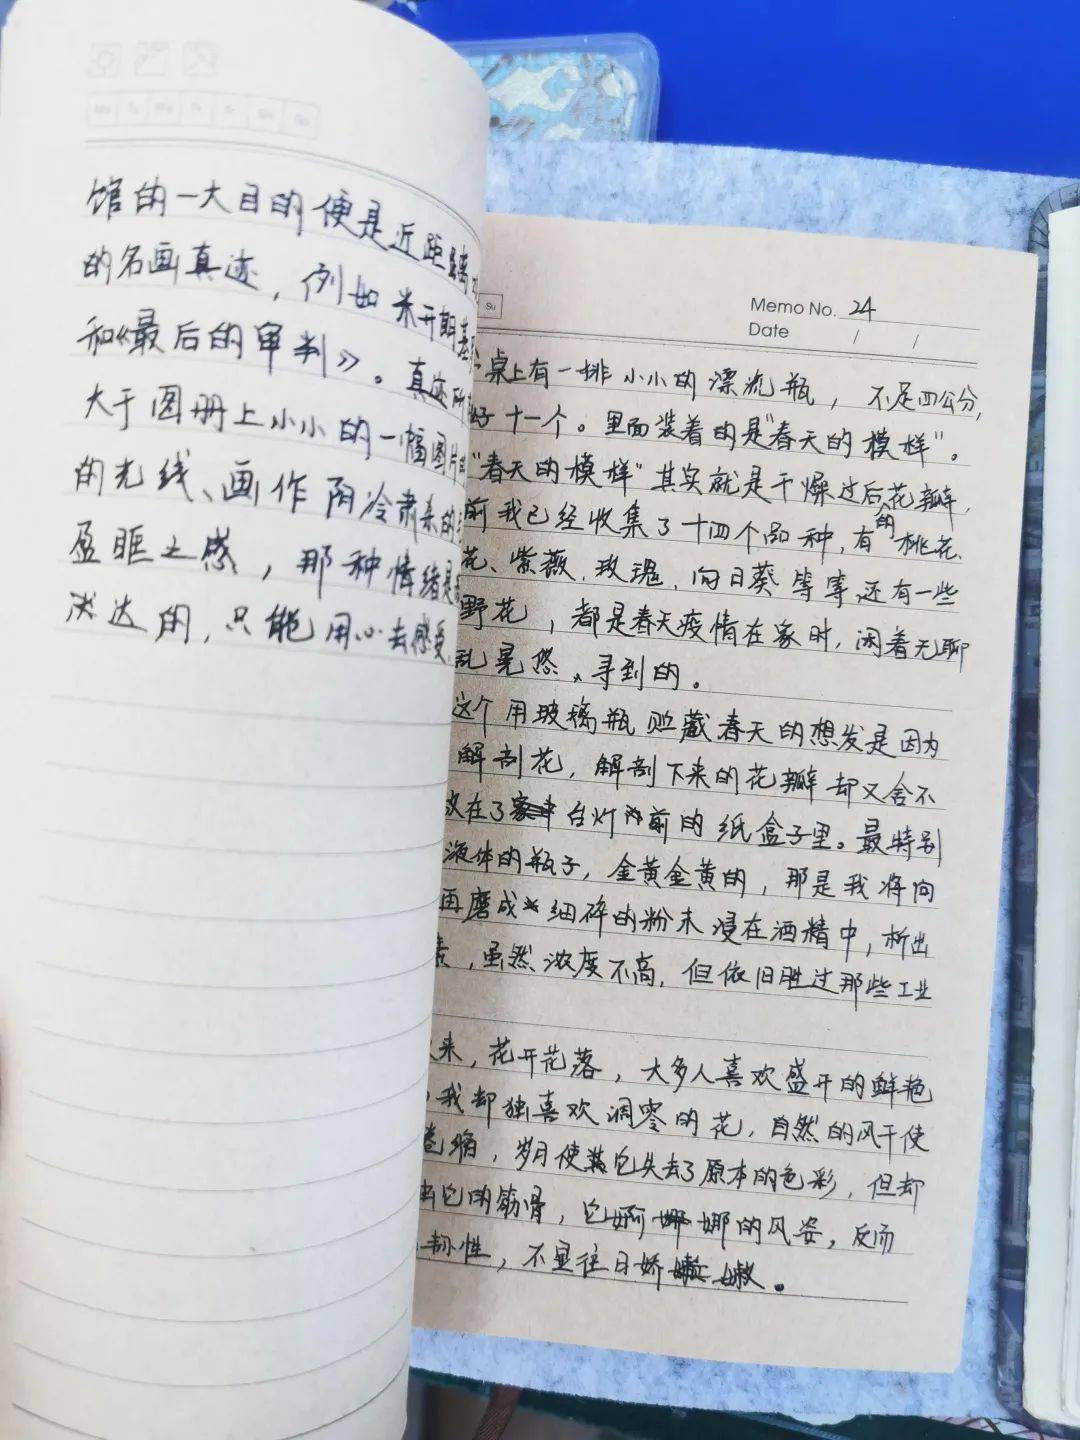 馆的一大目的便是近距离
的名画真迹，例如米开朗基
和《最后的审判》。真迹所
大于图册上小小的一幅图片
的光线、画作阴冷肃杀的
盈眶之感，那种情绪是
达的，只能用心去感受
Su
Memo No. 24
Date / /
桌上有一排小小的漂流瓶，不足四公分，
好十一个。里面装着的是"春天的模样"。
"春天的模样"其实就是干燥过后的花瓣，
前我已经收集了十四个品种，有桃花、
花、紫薇、玫瑰、向日葵等等，还有一些
野花，都是春天疫情在家时，闲着无聊
乱晃悠、寻到的。
这个用玻璃瓶贮藏春天的想发是因为
解剖花，解剖下来的花瓣却又舍不
放在了台灯前的纸盒子里。最特别
液体的瓶子，金黄金黄的，那是我将向
再磨成细碎的粉末浸在酒精中，析出
素，虽然浓度不高，但依旧胜过那些工业
来，花开花落，大多人喜欢盛开的鲜艳
我却独喜欢凋零的花，自然的风干使
卷缩，岁月使它失去了原本的色彩，但却
出它的筋骨，它婀娜的风姿，反而
韧性，不显往日娇嫩。